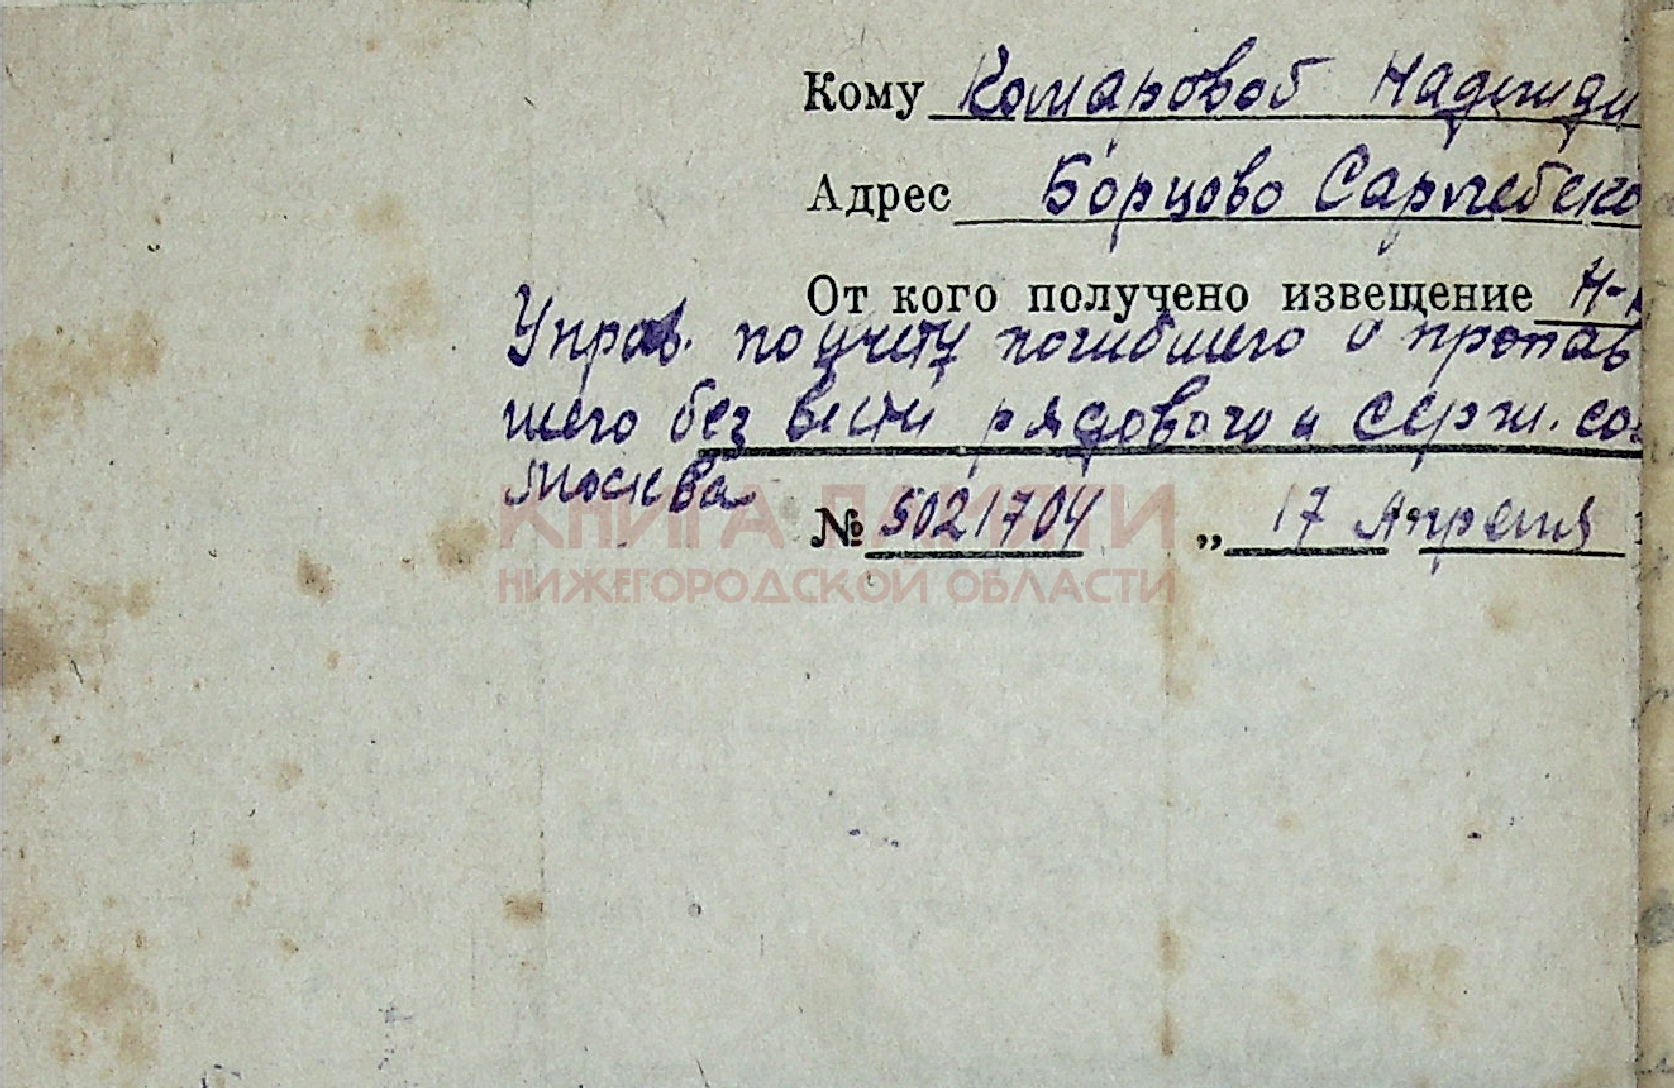 Кому Комаровой Надежди
Адрес Борцово Сарлебско
От кого получено извещение Н-
Управ. по учету погибшего и пропав
шего без вести рядового и серж. сос
Москва
№ 5021704 „ 17 Апреля
КНИГА ПАМЯТИ
НИЖЕГОРОДСКОЙ ОБЛАСТИ